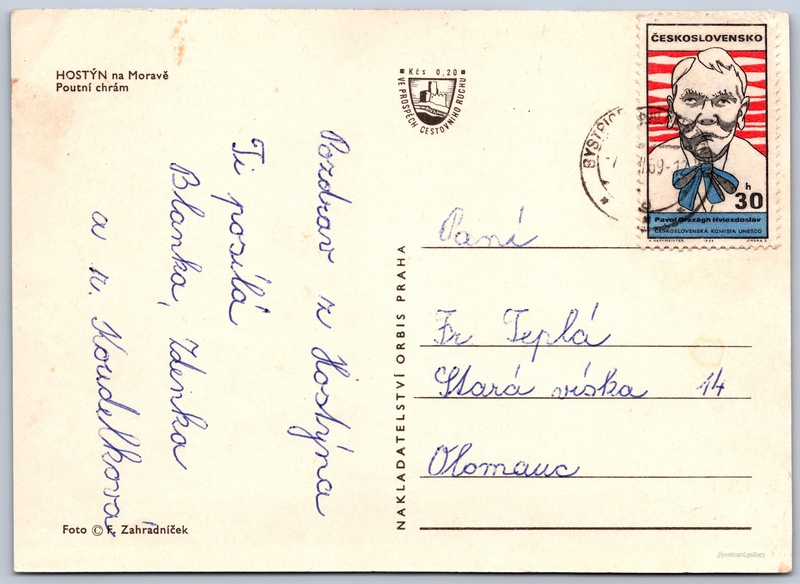 HOSTÝN na Moravě
Poutní chrám
Kčs 0,20
VE PROSPĚCH CESTOVNÍHO RUCHU
ČESKOSLOVENSKO
h
30
Pavol Országh Hviezdoslav
ČESKOSLOVENSKÁ KOMISIA UNESCO
BYSTŘICE
69-1
Pozdrav z Hostýna
Ti posílá
Blanka, Zdenka
a r. Koudelková
NAKLADATELSTVÍ ORBIS PRAHA
Paní
Fr Teplá
Stará víska 14
Olomouc
Foto © F. Zahradníček